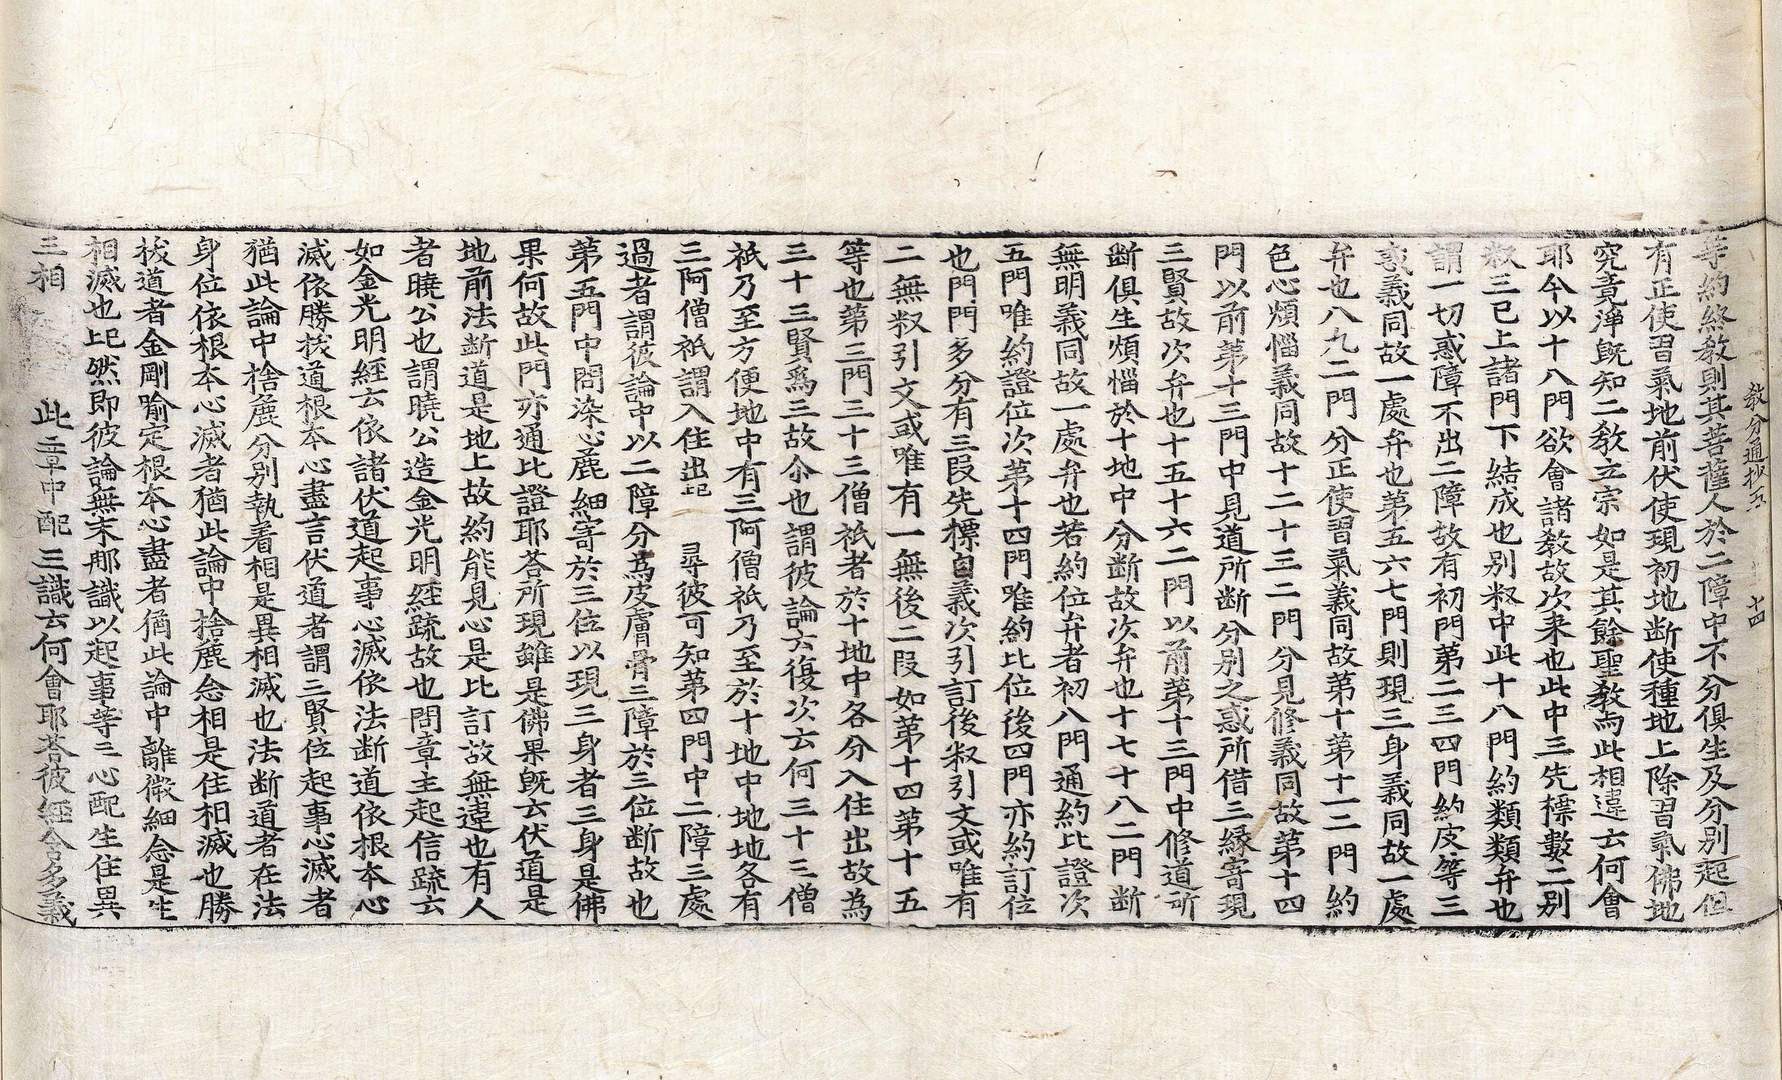 教分通抄五　十四
等約終教則其菩薩人於二障中不分俱生及分別起但
有正使習氣地前伏使現初地斷使種地上除習氣佛地
究竟淨旣知二教立宗如是其餘聖教與此相違云何會
耶今以十八門欲會諸教故次来也此中三先標數二別
叙三已上諸門下結成也別叙中此十八門約類類弁也
謂一切惑障不出二障故有初門第二三四門約皮等三
惑義同故一處弁也第五六七門則現三身義同故一處
弁也八九二門分正使習氣義同故第十第十一二門約
色心煩惱義同故十二十三二門分見修義同故第十四
門以前第十三門中見道所斷分別之惑所借三緣寄現
三賢故次弁也十五十六二門以前第十三門中修道所
斷俱生煩惱於十地中分斷故次弁也十七十八二門斷
無明義同故一處弁也若約位弁者初八門通約比證次
五門唯約證位次第十四門唯約比位後四門亦約訂位
也門門多分有三段先標自義次引訂後叙引文或唯有
二無叙引文或唯有一無後二段如第十四第十五
等也第三門三十三僧祇者於十地中各分入住出故為
三十三賢爲三故尒也謂彼論云復次云何三十三僧
祇乃至方便地中有三阿僧祇乃至於十地中地地各有
三阿僧祇謂入住出 尋彼可知第四門中二障三處
過者謂彼論中以二障分為皮膚骨三障於三位斷故也
第五門中問染心麁細寄於三位以現三身者三身是佛
果何故此門亦通比證耶荅所現雖是佛果旣云伏道是
地前法斷道是地上故約能見心是比訂故無違也有人
者曉公也謂曉公造金光明經疏故也問章主起信疏云
如金光明經云依諸伏道起事心滅依法斷道依根本心
滅依勝拔道根本心盡言伏道者謂三賢位起事心滅者
猶此論中捨麁分別執着相是異相滅也法斷道者在法
身位依根本心滅者猶此論中捨麁念相是住相滅也勝
拔道者金剛喻定根本心盡者猶此論中離微細念是生
相滅也 然即彼論無末那識以起事等三心配生住異
三相 此章中配三識云何會耶荅彼經含多義